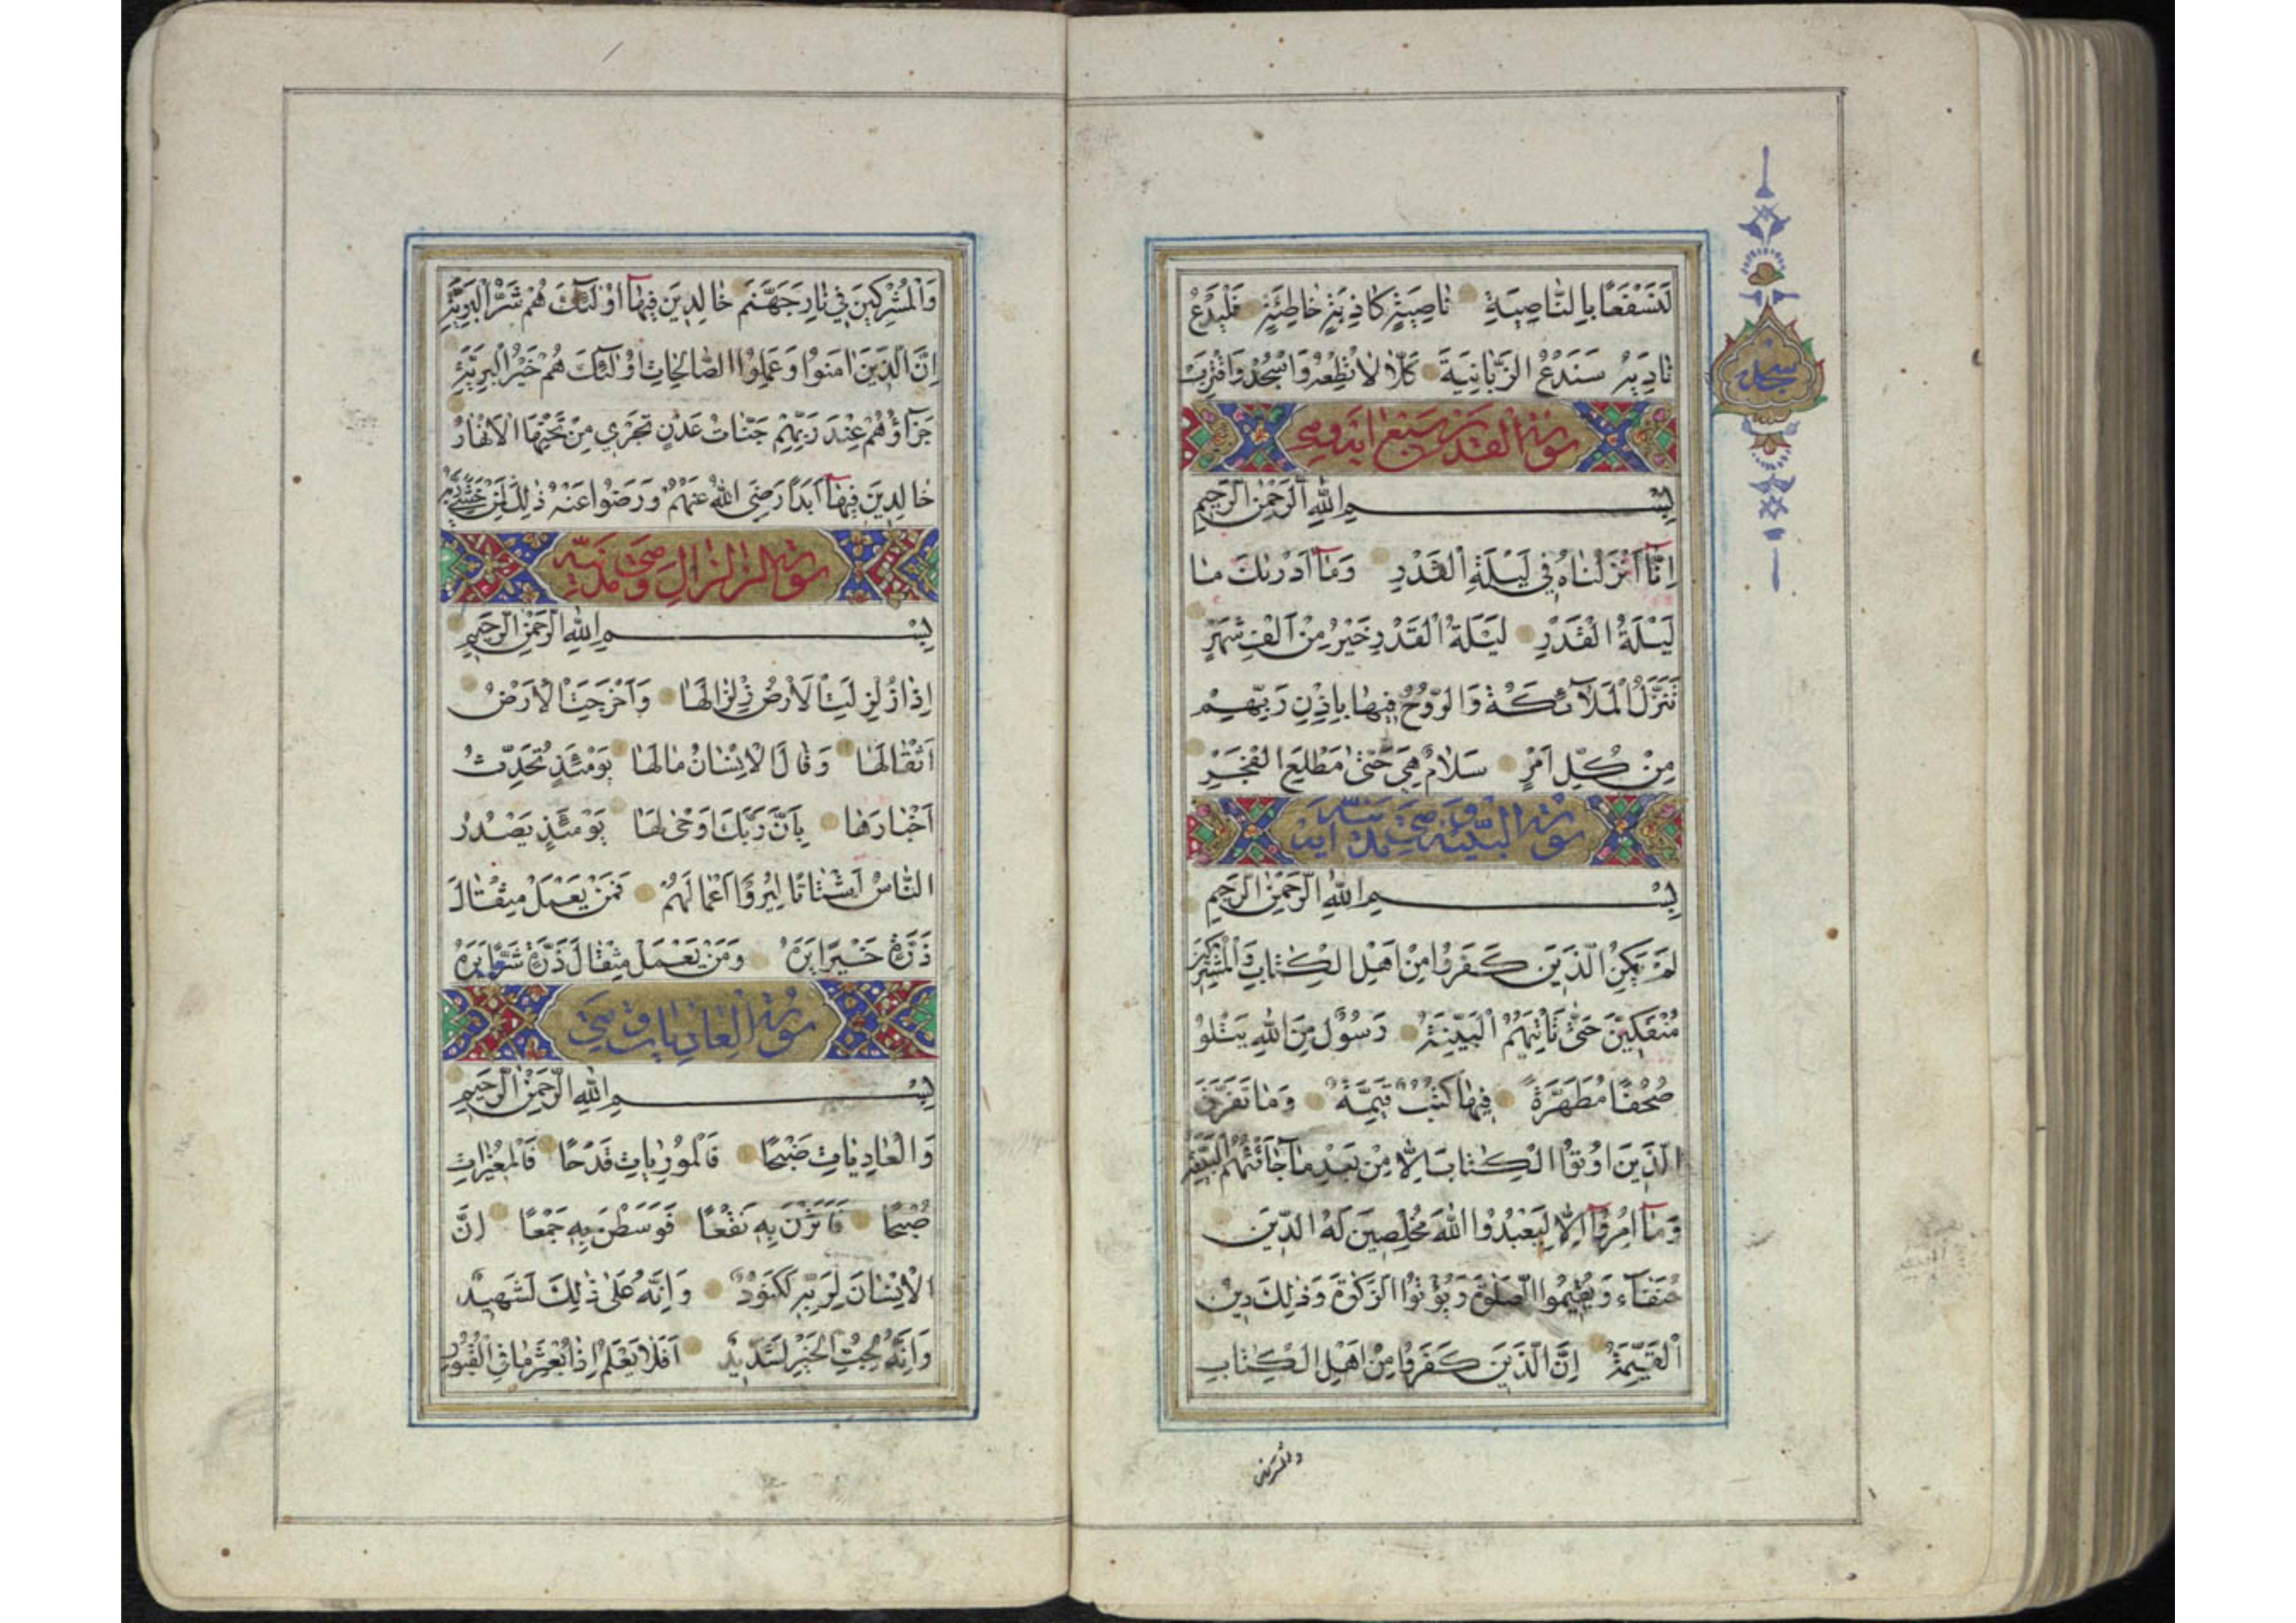 لَنَسْفَعًا بِالنَّاصِيَةِ نَاصِيَةٍ كَاذِبَةٍ خَاطِئَةٍ فَلْيَدْعُ
نَادِيَهُ سَنَدْعُ الزَّبَانِيَةَ كَلَّا لَا تُطِعْهُ وَاسْجُدْ وَاقْتَرِبْ
سجده
سورة القدر سبع آية وهي
بِسْمِ اللهِ الرَّحْمٰنِ الرَّحِيمِ
اِنَّآ اَنْزَلْنَاهُ فِي لَيْلَةِ الْقَدْرِ وَمَآ اَدْرٰىكَ مَا
لَيْلَةُ الْقَدْرِ لَيْلَةُ الْقَدْرِ خَيْرٌ مِنْ اَلْفِ شَهْرٍ
تَنَزَّلُ الْمَلَآئِكَةُ وَالرُّوحُ فِيهَا بِاِذْنِ رَبِّهِمْ
مِنْ كُلِّ اَمْرٍ سَلَامٌ هِيَ حَتّٰى مَطْلَعِ الْفَجْرِ
سورة البينة آية
بِسْمِ اللهِ الرَّحْمٰنِ الرَّحِيمِ
لَمْ يَكُنِ الَّذِينَ كَفَرُوا مِنْ اَهْلِ الْكِتَابِ وَالْمُشْرِكِينَ
مُنْفَكِّينَ حَتّٰى تَاْتِيَهُمُ الْبَيِّنَةُ رَسُولٌ مِنَ اللهِ يَتْلُوا
صُحُفًا مُطَهَّرَةً فِيهَا كُتُبٌ قَيِّمَةٌ وَمَا تَفَرَّقَ
الَّذِينَ اُوتُوا الْكِتَابَ اِلَّا مِنْ بَعْدِ مَا جَآءَتْهُمُ الْبَيِّنَةُ
وَمَآ اُمِرُوٓا اِلَّا لِيَعْبُدُوا اللهَ مُخْلِصِينَ لَهُ الدِّينَ
حُنَفَآءَ وَيُقِيمُوا الصَّلٰوةَ وَيُؤْتُوا الزَّكٰوةَ وَذٰلِكَ دِينُ
الْقَيِّمَةِ اِنَّ الَّذِينَ كَفَرُوا مِنْ اَهْلِ الْكِتَابِ
والمشركين
وَالْمُشْرِكِينَ فِي نَارِ جَهَنَّمَ خَالِدِينَ فِيهَآ اُولٰٓئِكَ هُمْ شَرُّ الْبَرِيَّةِ
اِنَّ الَّذِينَ اٰمَنُوا وَعَمِلُوا الصَّالِحَاتِ اُولٰٓئِكَ هُمْ خَيْرُ الْبَرِيَّةِ
جَزَآؤُهُمْ عِنْدَ رَبِّهِمْ جَنَّاتُ عَدْنٍ تَجْرِي مِنْ تَحْتِهَا الْاَنْهَارُ
خَالِدِينَ فِيهَآ اَبَدًا رَضِيَ اللهُ عَنْهُمْ وَرَضُوا عَنْهُ ذٰلِكَ لِمَنْ خَشِيَ رَبَّهُ
سورة الزلزال وهي مدنية
بِسْمِ اللهِ الرَّحْمٰنِ الرَّحِيمِ
اِذَا زُلْزِلَتِ الْاَرْضُ زِلْزَالَهَا وَاَخْرَجَتِ الْاَرْضُ
اَثْقَالَهَا وَقَالَ الْاِنْسَانُ مَا لَهَا يَوْمَئِذٍ تُحَدِّثُ
اَخْبَارَهَا بِاَنَّ رَبَّكَ اَوْحٰى لَهَا يَوْمَئِذٍ يَصْدُرُ
النَّاسُ اَشْتَاتًا لِيُرَوْا اَعْمَالَهُمْ فَمَنْ يَعْمَلْ مِثْقَالَ
ذَرَّةٍ خَيْرًا يَرَهُ وَمَنْ يَعْمَلْ مِثْقَالَ ذَرَّةٍ شَرًّا يَرَهُ
سورة العاديات وهي
بِسْمِ اللهِ الرَّحْمٰنِ الرَّحِيمِ
وَالْعَادِيَاتِ ضَبْحًا فَالْمُورِيَاتِ قَدْحًا فَالْمُغِيرَاتِ
صُبْحًا فَاَثَرْنَ بِهِ نَقْعًا فَوَسَطْنَ بِهِ جَمْعًا اِنَّ
الْاِنْسَانَ لِرَبِّهِ لَكَنُودٌ وَاِنَّهُ عَلٰى ذٰلِكَ لَشَهِيدٌ
وَاِنَّهُ لِحُبِّ الْخَيْرِ لَشَدِيدٌ اَفَلَا يَعْلَمُ اِذَا بُعْثِرَ مَا فِي الْقُبُورِ